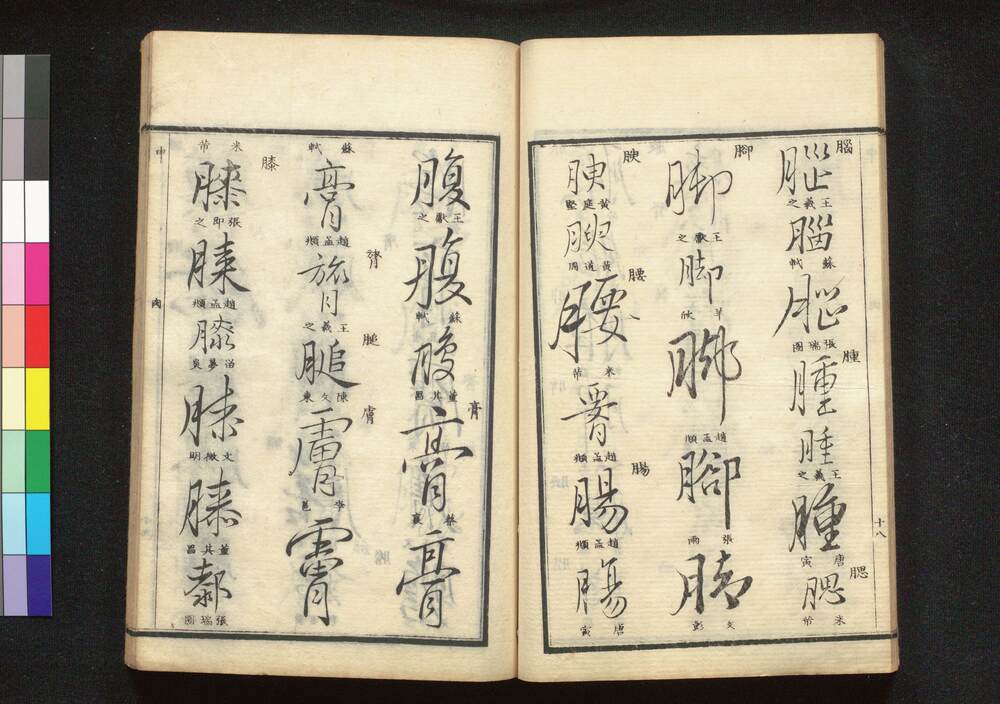 十八
腦
腦
王羲之
腦
蘇軾
腦
張瑞圖
腫
腫
腫
王羲之
腫
唐寅
腮
腮
米芾
腳
脚
王獻之
脚
羊欣
脚
趙孟頫
腳
張雨
脚
文彭
腴
腴
黃庭堅
腴
黃道周
腰
腰
米芾
趙孟頫
腸
腸
趙孟頫
腸
唐寅
腹
王獻之
腹
蘇軾
腹
董其昌
膏
膏
蔡襄
膏
蘇軾
膏
趙孟頫
膂
膂
王羲之
膇
膇
陳文東
膚
膚
李邕
膚
米芾
膝
膝
張即之
膝
趙孟頫
膝
膝
文徵明
膝
董其昌
膝
張瑞圖
申
肉